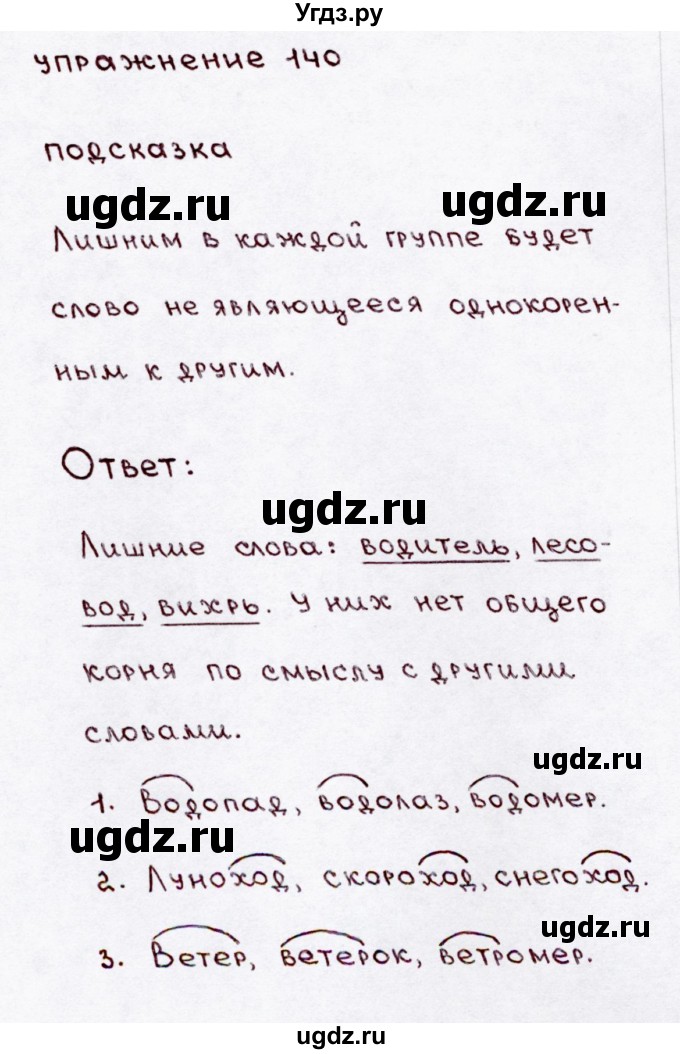 Угдз.ру
упражнение 140
подсказка
ugdz.ru ugdz.ru
Лишним в каждой группе будет
слово не являющееся однокорен-
ным к другим.
Ответ:
ugdz.ru
Лишние слова: водитель, лесо-
вод, вихрь. У них нет общего
корня по смыслу с другими
словами.
ugdz.ru
1. Водопад, водолаз, водомер.
ugdz.ru
2. Луноход, скороход, снегоход.
ugdz.ru
3. Ветер, ветерок, ветромер.
ugdz.ru